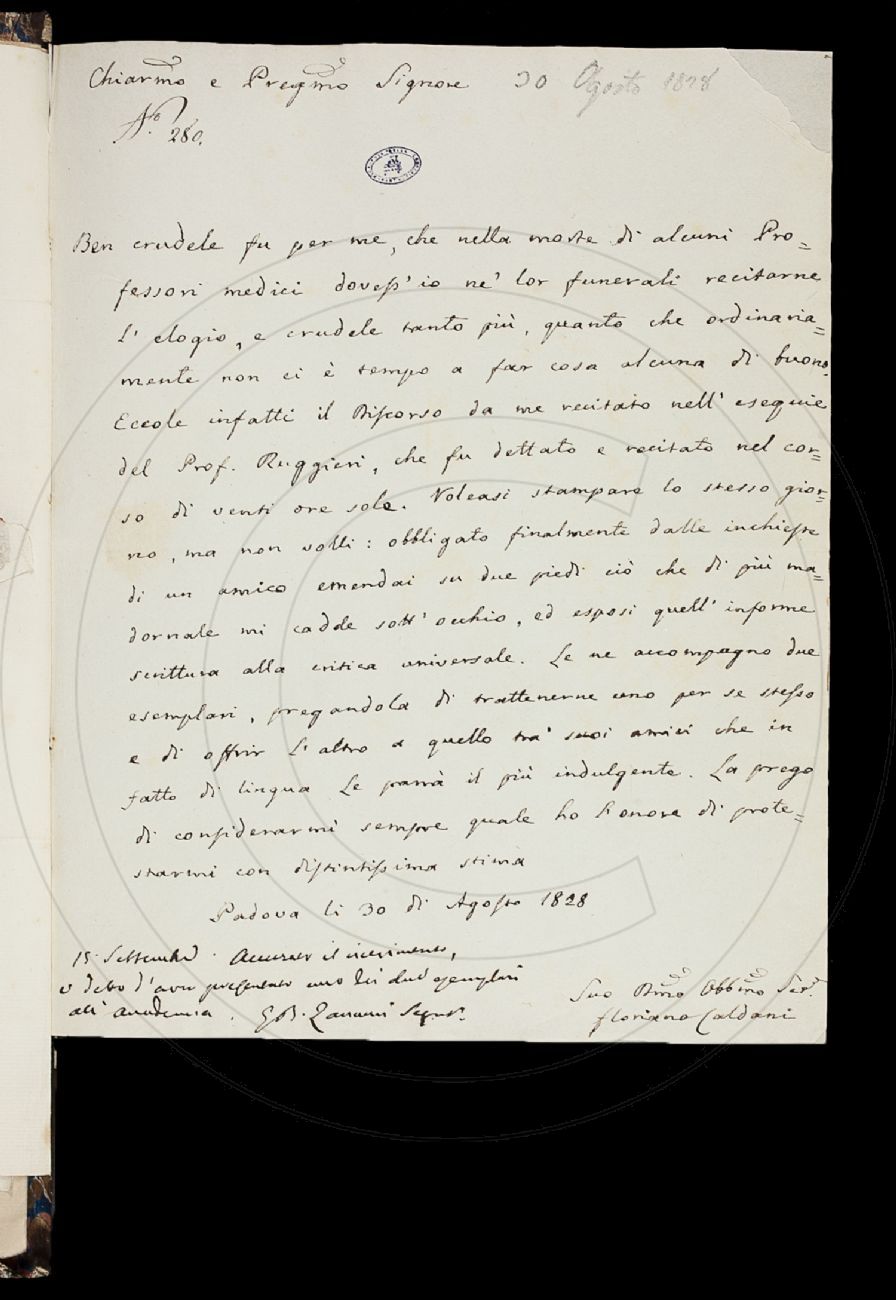 Chiarmo e Pregmo Signore 30 Agosto 1828
No. 280.
Ben crudele fu per me, che nella morte di alcuni Pro=
fessori medici dovess' io ne' lor funerali recitarne
l' elogio, e crudele tanto più, quanto che ordinaria=
mente non ci è tempo a far cosa alcuna di buono.
Eccole infatti il Discorso da me recitato nell' esequie
del Prof. Ruggieri, che fu dettato e recitato nel cor=
so di venti ore sole. Voleasi stampare lo stesso gior=
no, ma non volli: obbligato finalmente dalle inchieste
di un amico emendai su due piedi ciò che di più ma=
dornale mi cadde sott' occhio, ed esposi quell' informe
scrittura alla critica universale. Le ne accompagno due
esemplari, pregandola di trattenerne uno per se stesso
e di offrir l' altro a quello tra' suoi amici che in
fatto di lingua Le parrà il più indulgente. La prego
di considerarmi sempre quale ho l' onore di prote=
starmi con distintissima stima
Padova li 30 di Agosto 1828
15 Settembre. Accusato il ricevimento,
e detto d' aver presentato uno dei due esemplari
all' accademia. G. B. Zannoni Segret.
Suo Dmo Obbmo Ser.
Floriano Caldani